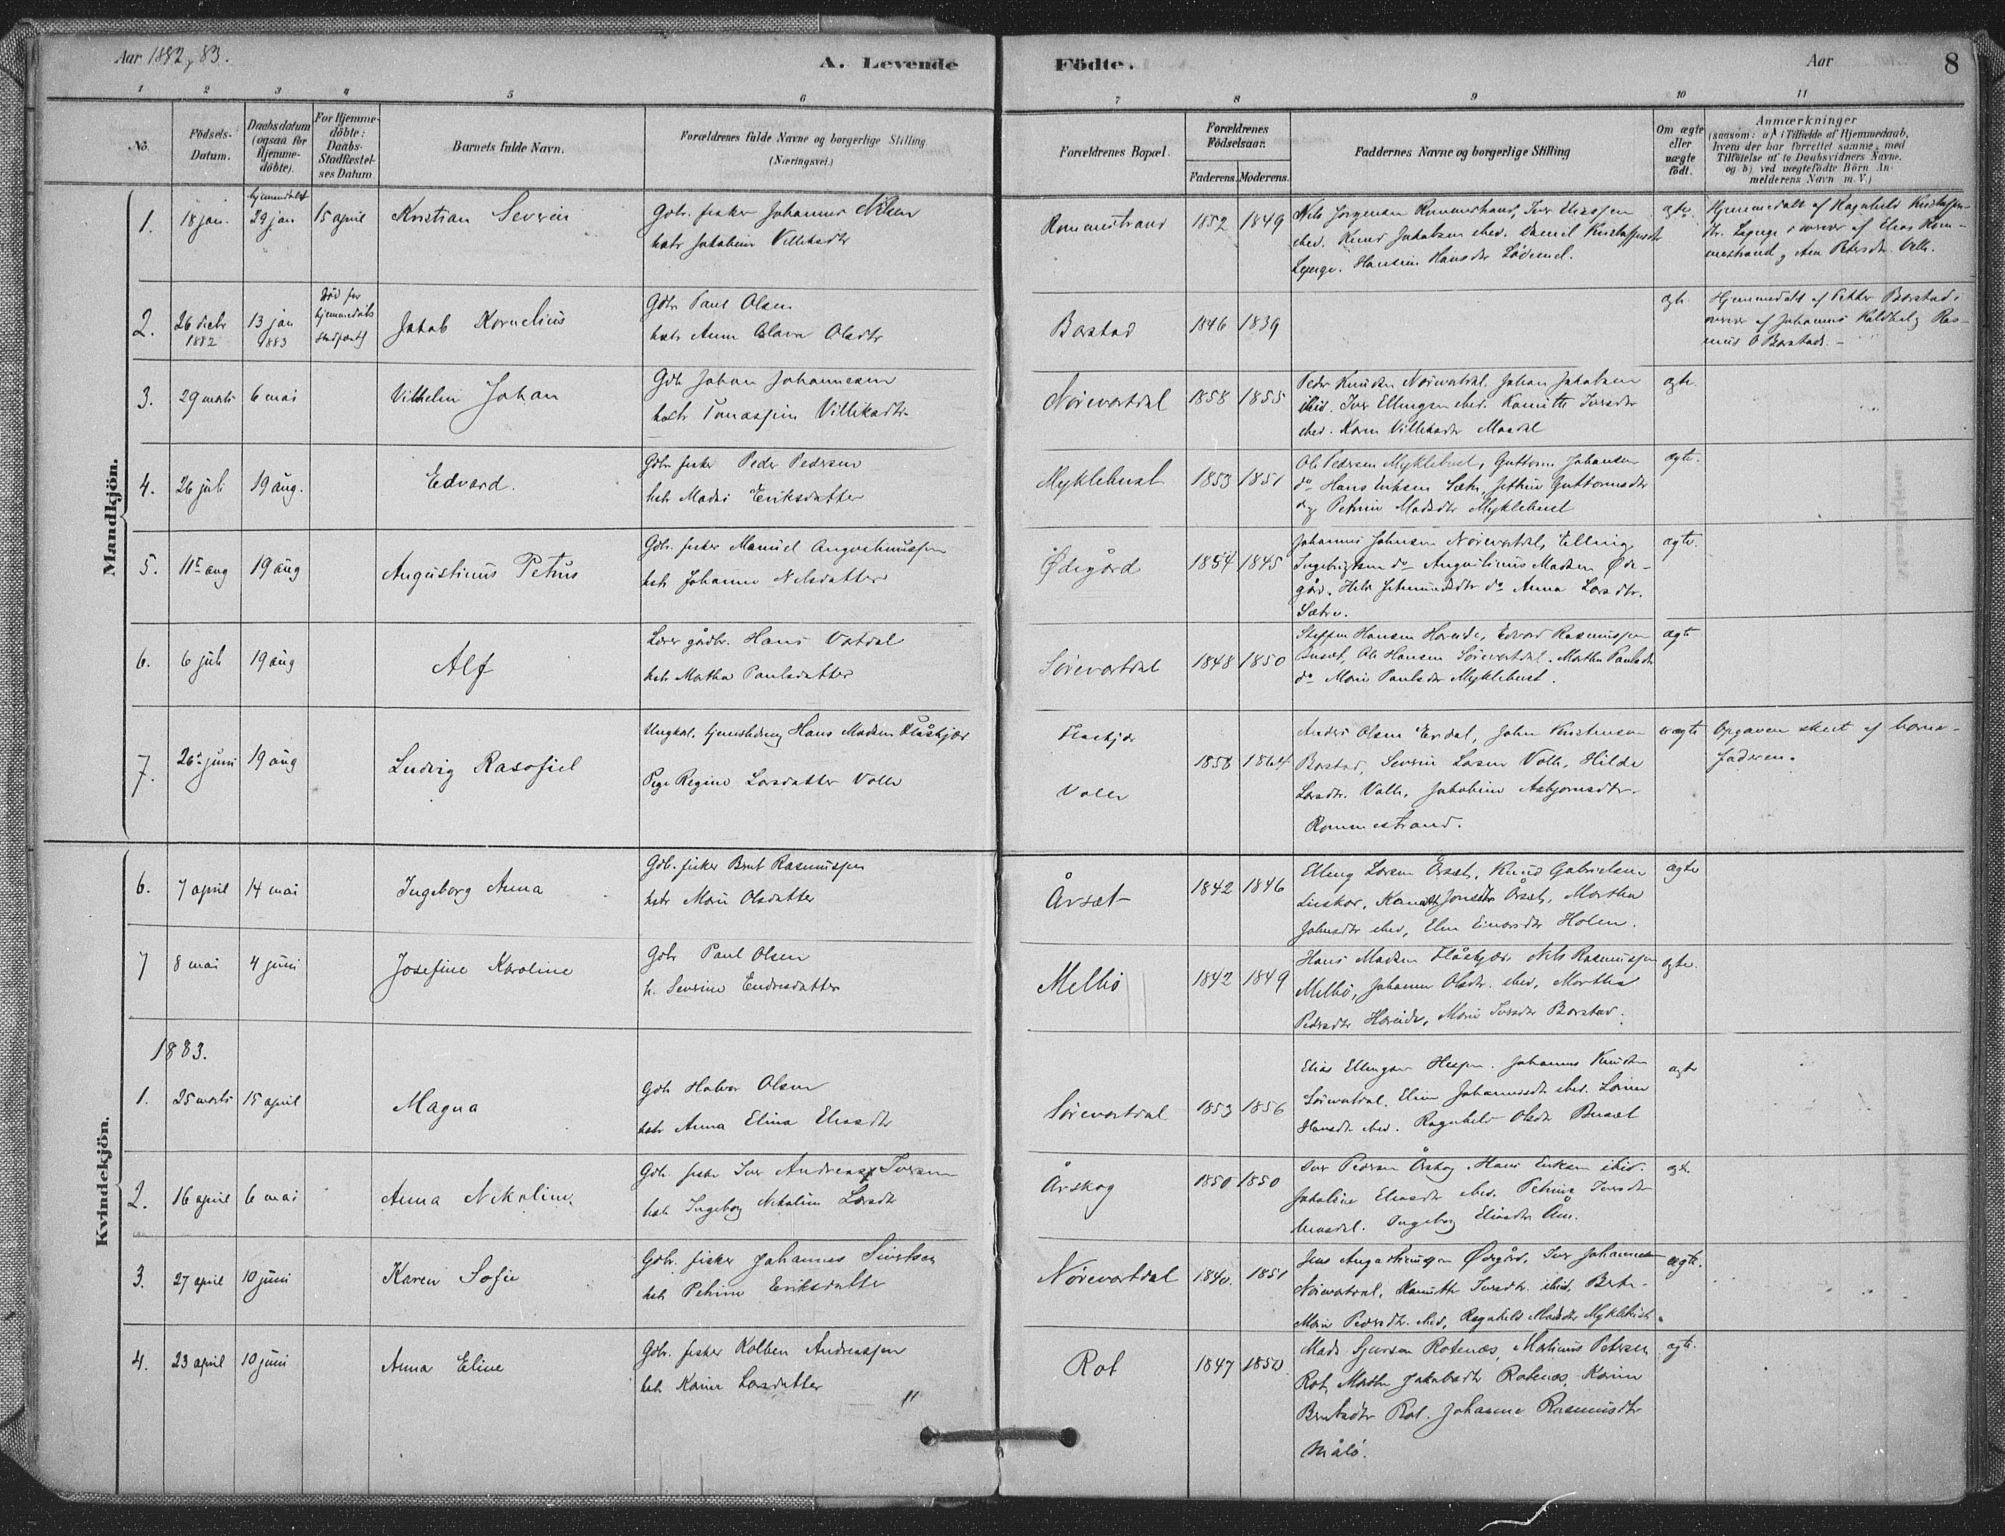 Aar 1882, 83.
A. Levende Födte.
Aar
8
1 2 3 4 5 6 7 8 9 10 11
No.
Födsels-Datum.
Daabsdatum (ogsaa for Hjemme-döbte).
For Hjemme-döbte: Daabs-Stadfæstel-ses Datum.
Barnets fulde Navn.
Forældrenes fulde Navne og borgerlige Stilling (Næringsvei.)
Forældrenes Bopæl.
Forældrenes Födselsaar.
Faderens. Moderens.
Faddernes Navne og borgerlige Stilling
Om ægte eller uægte födt.
Anmærkninger
(saasom: a) i Tilfælde af Hjemmedaab, hvem der har forrettet samme, med Tilföielse af to Daabsvidners Navne. og b) ved uægtefödte Börn An-melderens Navn m. V.)
Mandkjön.
1. 18 jan. hjemmedøbt 29 jan 15 april Kristian Severin
Gdbr. fisker Johannes Nilsen
hstr Jakobine Villiksdtr
Rommestrand 1852 1849
Nils Jørgensen Rommestrand, Iver Eliassen
ibid. Knud Jakobsen ibid. Daniel Kristoffersen
Hansine Hansdtr
ægte.
Hjemmedøbt af Ragnhild
overvær af Elias Rom-
mestrand, Ane Petersdtr. Valle.
2. 26 decbr 1882 13 jan 1883 død før hjemmedåbs stadfæst Jakob Kornelius
Gdbr. Paul Olsen
hstr Anne Olava Olsdtr
Borstad 1846 1839
ægte
Hjemmedøbt af Petter Borstad i
overvær af Johannes Kaldhol, Ras-
mus O Borstad. -
3. 29 marts 6 mai Vilhelm Johan
Gdb Johan Johannesen
hstr Tomasine Villiksdtr.
Nørevartdal 1858 1855
Peder Knudsen Nørevartdal. Johan Jakobsen
ibid. Iver Ellingsen ibid. Kanutte Iversdtr
ibid. Karen Villiksdtr
ægte.
4. 26 juli 19 aug. Edvard.
Gdbr. fisker Peder Pedersen
hstr Madsi Eriksdatter
Myklebust 1853 1851
Ole Pedersen Myklebust, Guttorm Johansen
do Hans Eriksen Sætre, Guttormsdtr
og Petrine Madsdtr Myklebust
ægte.
5. 11te aug 19 aug Augustinus Petrus
Gdbr. fisker Manuel Augustinussen
hstr Johanne Nilsdatter
Ødegård 1854 1845
Johannes Johnsen Nørevartdal, Elling
Ingebrigtsen do Augustinus Madsen Øde-
gård. do Anna Larsdtr.
Sætre.
ægte.
6. 6 juli 19 aug Alf
Lærer gårdbr. Hans Vatdal
hstr Martha Paulsdatter
Sørevartdal 1848 1850
Steffen Hansen Hareide, Edvard Rasmussen
Buset, Ole Hansen Sørevartdal. Martha Paulsdtr
do Marie Paulsdtr Myklebust.
ægte
7. 26de juni 19 aug Ludvig Rasofiel
Ungkar. Hans Madsen Flåskjær
Pige Regine Larsdatter Valle
Flaskjær
Valle
1858 1864
Anders Olsen Endal, John Kristensen
Borstad, Severin Larsen Valle, Hilde
Larsdtr. Valle, Jakobine Asbjørnsdtr.
Rommestrand.
uægte
Opgaven skeet af barne-
faderen.
Kvindekjön.
6. 7 april 14 mai Ingeborg Anna
Gdb. fisker Bernt Rasmussen
hstr Marie Olsdatter
Årsæt 1842 1846
Elling Larsen Årsæt, Knud Gabrielsen
Kanutte Jonsdtr Årsæt, Martha
Johnsdtr ibid, Elen Einarsdtr Holen.
ægte
7 8 mai 4 juni Josefine Karoline
Gdb Paul Olsen
h. Severine Endresdatter
Melbø 1842 1849
Hans Madsen Flåskjær, Nils Rasmussen
Melbø, Johanne Olsdtr. ibid, Martha
Pedersdtr Hareide, Marie Iversdtr Borstad.
ægte.
1883.
1. 25 marts 15 april Magna
Gdb Halvor Olsen
hstr Anna Elina Eliasdtr
Sørevartdal 1853 1856
Elias Ellingsen Johannes Knudsen
Sørevartdal. Eline Johannesdtr ibid.
Hansdtr ibid. Ragnhild Olsdtr Buset
ægte
2. 16 april 6 mai Anna Nikoline
Gdb. fisker Iver Andreas Iversen
hstr Ingeborg Nikoline Larsdtr
Årskog 1850 1850
Iver Pedersen Årskog. Hans Eriksen ibid.
Eliasdtr ibid. Petrine Iversdtr
Ingeborg Eliasdtr Åm.
ægte.
3. 27 april 10 juni Karen Sofie
Gdbr. fisker Johannes Sivertsen
hstr Petrine Eriksdatter
Nørevartdal 1840. 1851
Jens Augustinussen Ødegård, Iver Johannesen
Nørevartdal, Kanutte Iversdtr. ibid, Berte
Marie Pedersdtr. ibid, Ragnhild Madsdtr Myklebust.
ægte.
4. 23 april 10 juni Anna Eline
Gdbr. fisker Kolben Andreassen
hstr Karine Larsdatter
"
Rot 1847 1850
Mads Sjursen Rotenæs, Martinus Petersen
Rot, Marthe Jakobsdtr Rotenæs, Karine
Berntsdtr Rot. Johanne Rasmusdtr
Måló.
ægte.